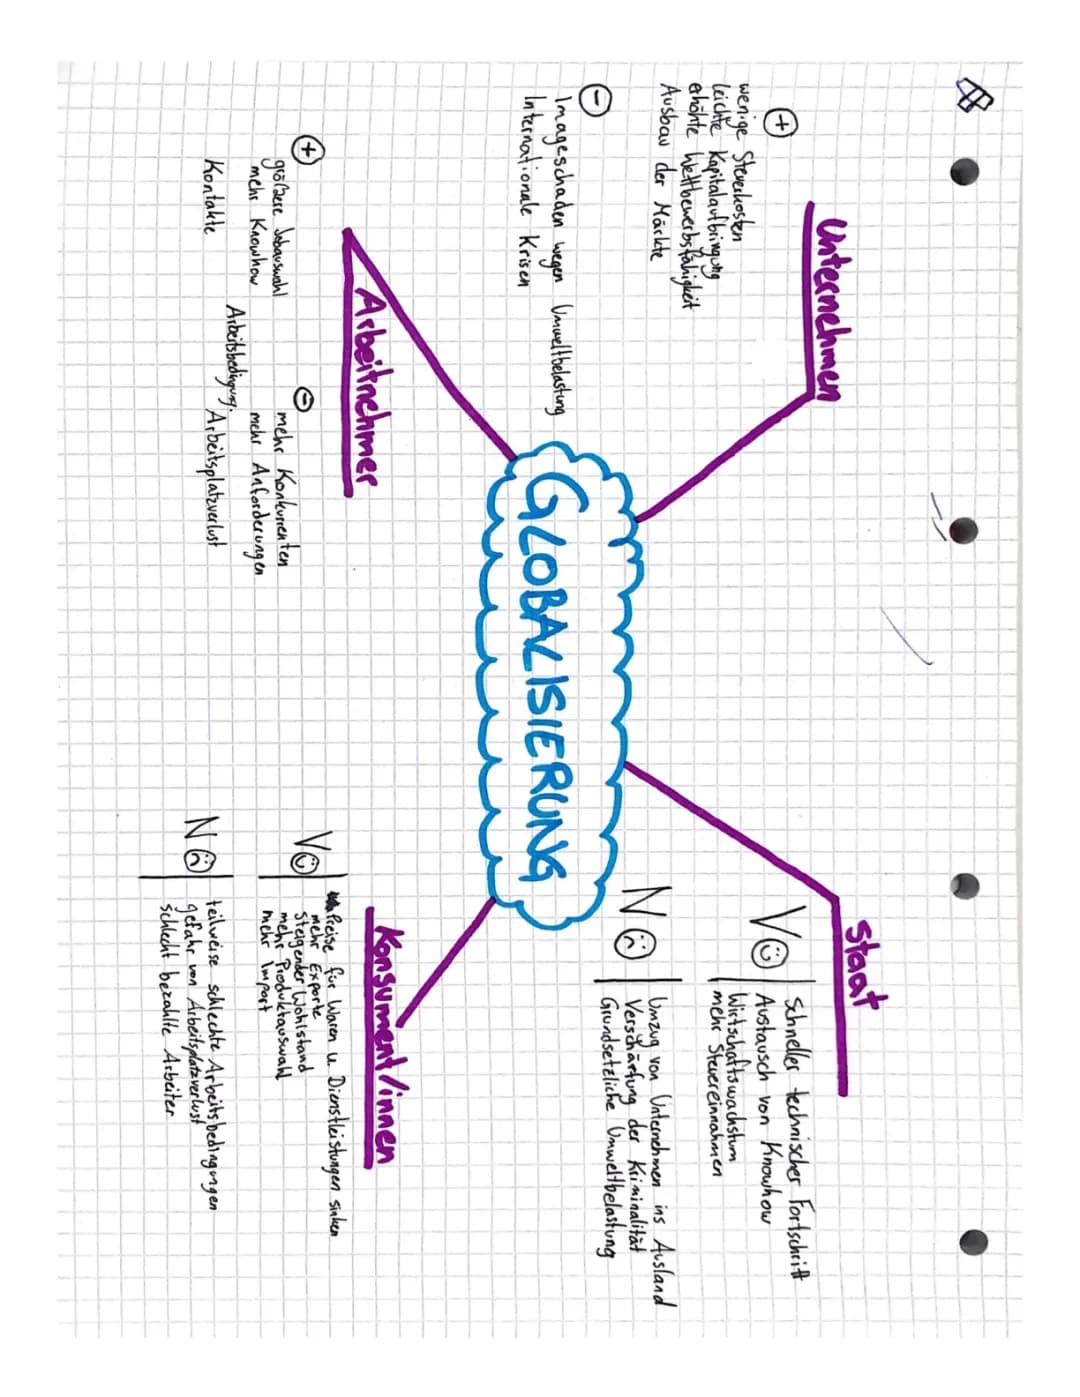 Unternehmen
+
wenige Steuerkosten
leichte Kapitalaufbringung
erhöhte Wettbewerbsfähigkeit
Ausbau der Märkte
-
Imageschaden wegen Umweltbelastung
Internationale Krisen
Staat
V
schneller technischer Fortschritt
Austausch von Knowhow
Wirtschaftswachstum
mehr Steuereinnahmen
N
Umzug von Unternehmen ins Ausland
Verschärfung der Kriminalität
Grundsetzliche Umweltbelastung
GLOBALISIERUNG
Arbeitnehmer
+
größere Jobauswahl
mehr Knowhow
Kontakte
-
mehr Konkurrenten
mehr Anforderungen
Arbeitsbedingung.
Arbeitsplatzverlust
Konsument/innen
V
Preise für Waren u. Dienstleistungen sinken
mehr Exporte
Steigender Wohlstand
mehr Produktauswahl
mehr Import
N
teilweise schlechte Arbeitsbedingungen
gefahr von Arbeitsplatzverlust
schlecht bezahlte Arbeiter